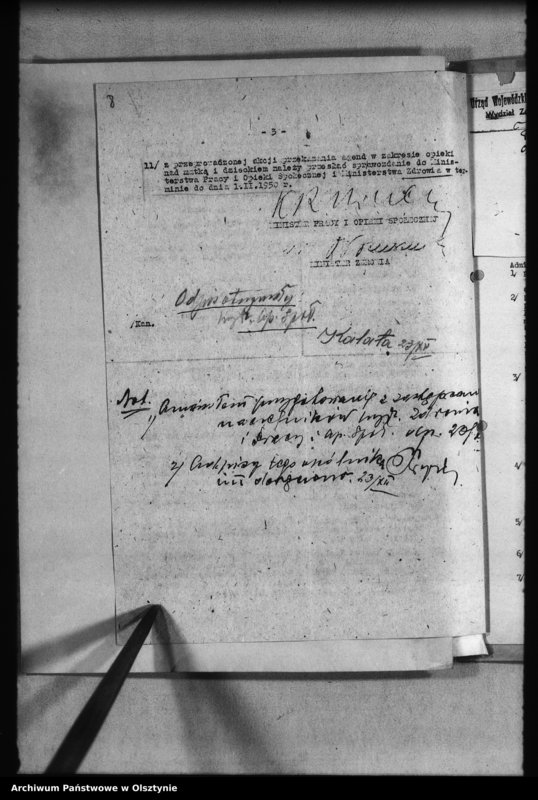 8
- 3 -
11/ z przeprowadzonej akcji przekazania agend w zakresie opieki
nad matką i dzieckiem należy przesłać sprawozdanie do Minis-
terstwa Pracy i Opieki Społecznej i Ministerstwa Zdrowia w ter-
minie do dnia 1.II.1950 r.
MINISTER PRACY I OPIEKI SPOŁECZNEJ
MINISTER ZDROWIA
/Kan.
Odpis otrzymały
Kalata 23/XII
Not.
1/ Omówiłem
naczelników Wydz. Zdrowia
i Pracy i Op. Społ.
2/ Odpisy tego okólnika
im doręczono. 23/XII
Urząd Wojewódzki
Wydział
1/
2/
3/
4/
5/
6/
7/
Archiwum Państwowe w Olsztynie